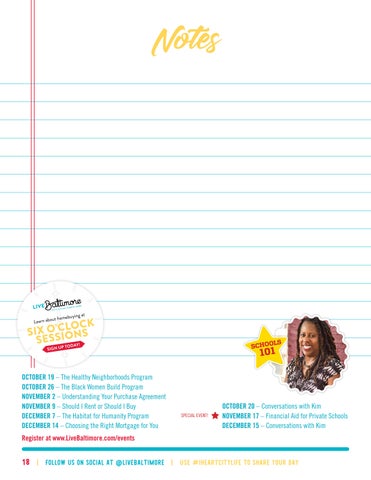 Notes
LIVE Baltimore
Learn about homebuying at
SIX O'CLOCK
SESSIONS
SIGN UP TODAY!
SCHOOLS
101
OCTOBER 19 – The Healthy Neighborhoods Program
OCTOBER 26 – The Black Women Build Program
NOVEMBER 2 – Understanding Your Purchase Agreement
NOVEMBER 9 – Should I Rent or Should I Buy
DECEMBER 7 – The Habitat for Humanity Program
DECEMBER 14 – Choosing the Right Mortgage for You
Register at www.LiveBaltimore.com/events
OCTOBER 20 – Conversations with Kim
SPECIAL EVENT! NOVEMBER 17 – Financial Aid for Private Schools
DECEMBER 15 – Conversations with Kim
18 | FOLLOW US ON SOCIAL AT @LIVEBALTIMORE | USE #IHEARTCITYLIFE TO SHARE YOUR DAY